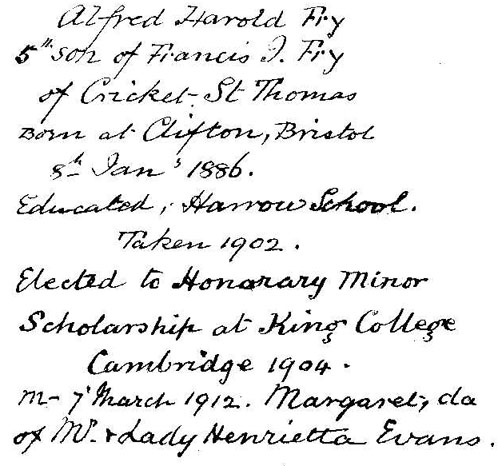 Alfred Harold Fry
5th son of Francis J. Fry
of Cricket St Thomas
Born at Clifton, Bristol
8th Jany 1886.
Educated, Harrow School.
Taken 1902.
Elected to Honarary Minor
Scholarship at King College
Cambridge 1904.
m- 7 March 1912. Margaret, da
of Mr. & Lady Henrietta Evans.